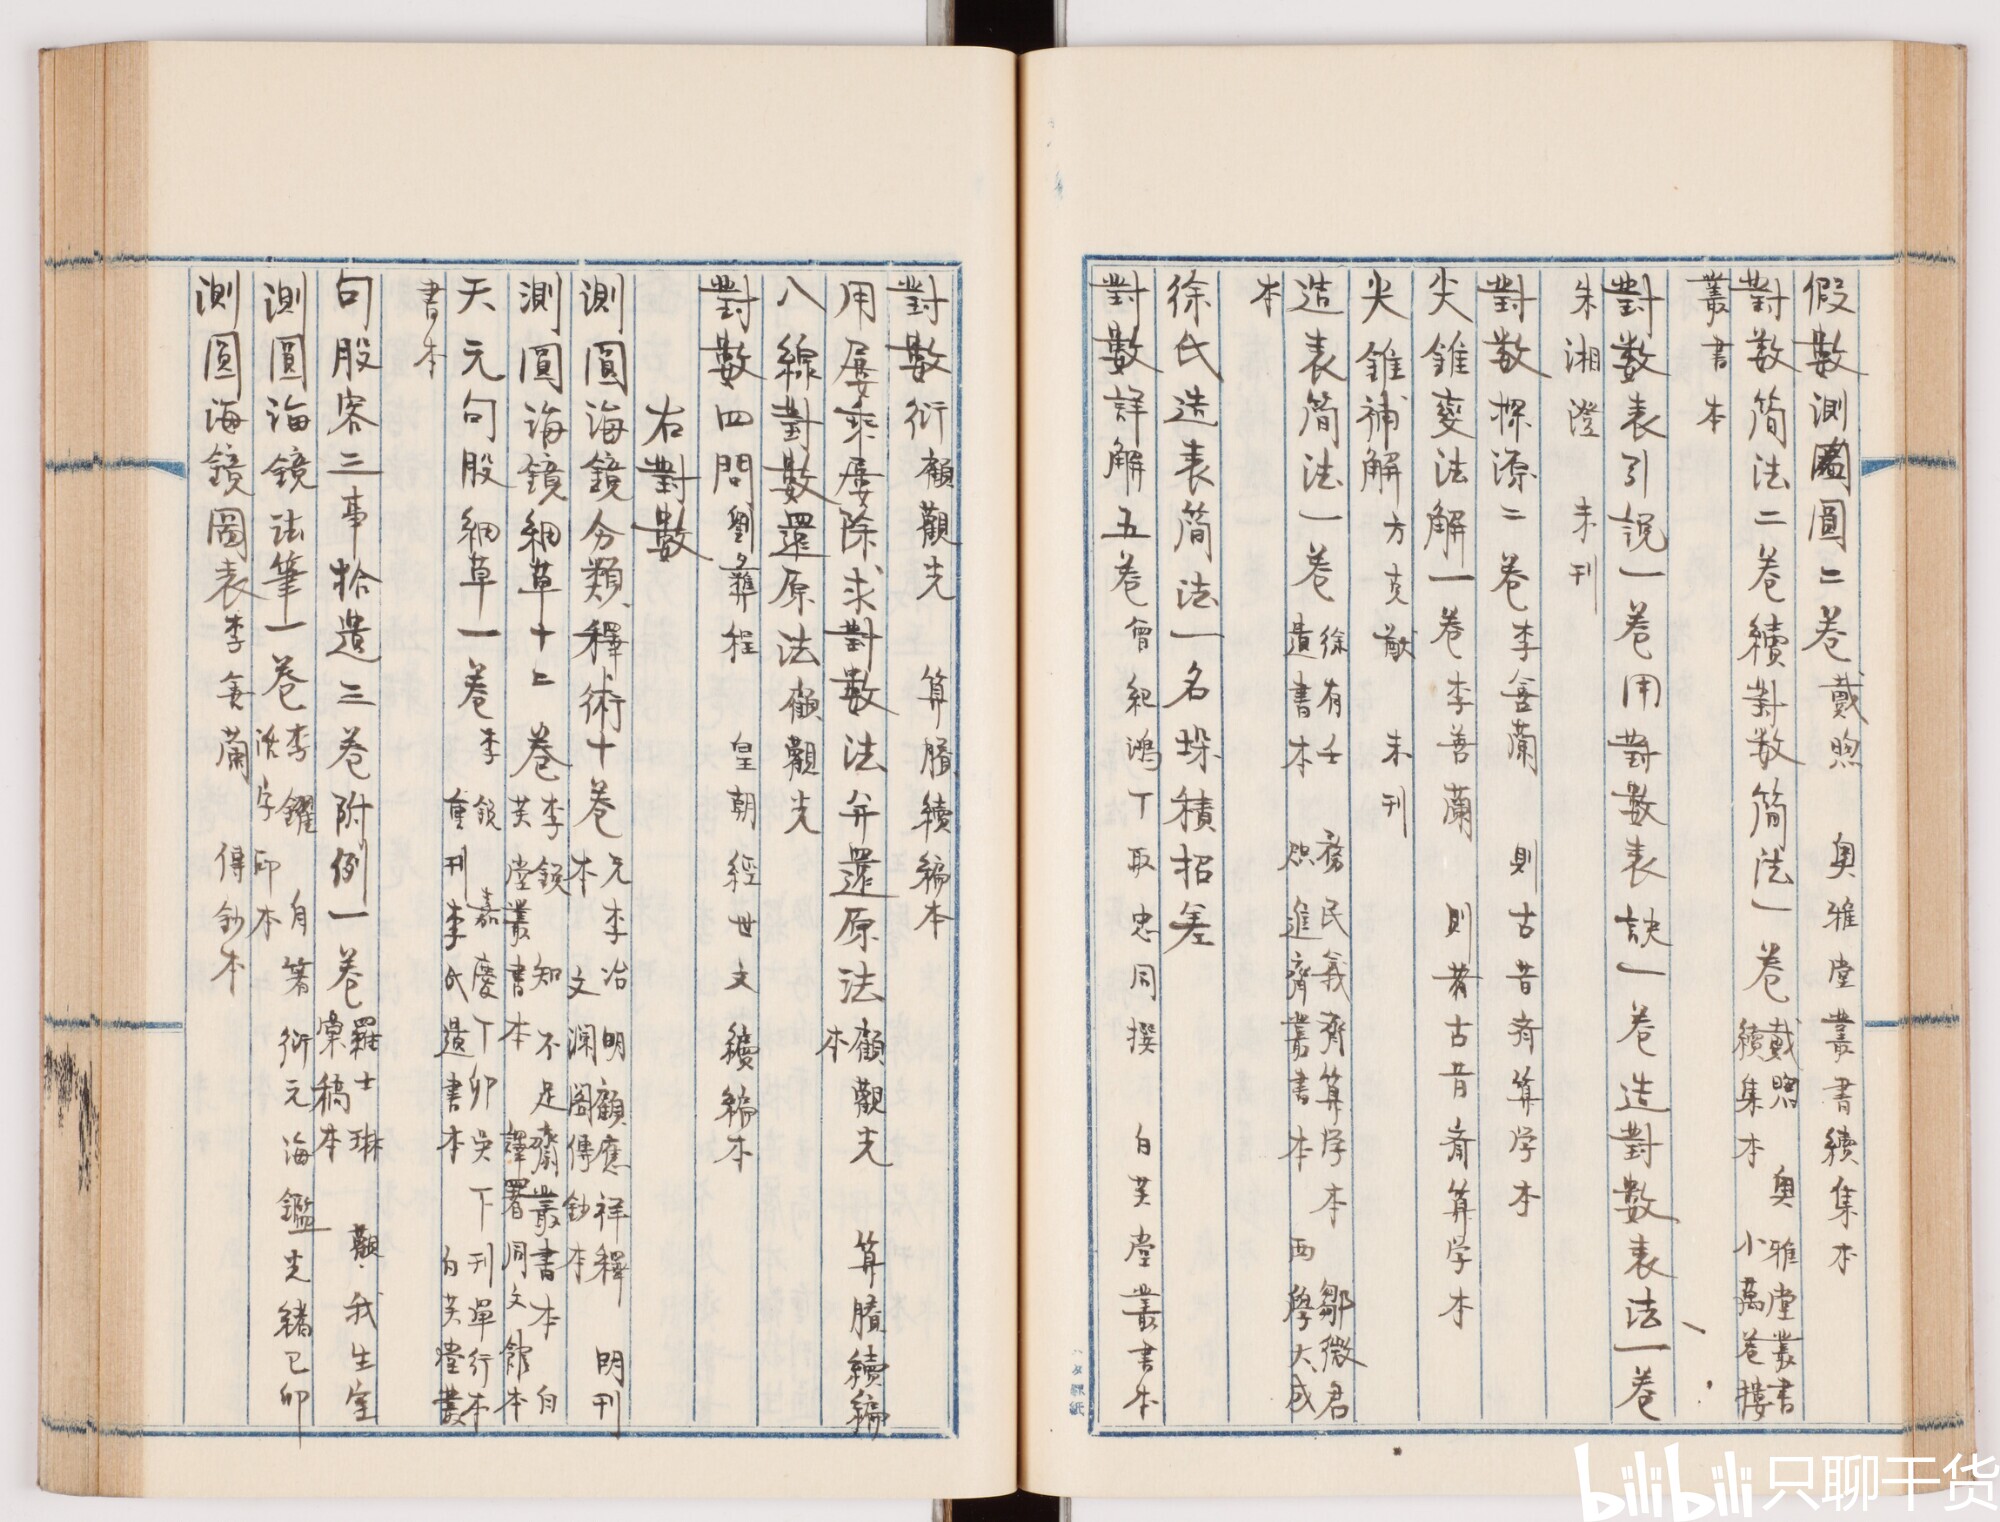 假數測圓二卷 戴煦 奧雅堂叢書續集本
對数簡法二卷續對数簡法一卷 戴煦 奧雅堂叢書續集本 小萬卷樓
叢書本
對数表引説一卷用對數表訣一卷造對數表法一卷
朱湘澄 未刊
對数探源二卷 李善蘭 則古昔斎算学本
尖錐変法解一卷 李善蘭 則古昔斎算学本
尖錐補解 方克猷 未刊
造表簡法一卷 徐有壬 務民義齊算学本 鄒微君遺書本 進齊叢書本 西學大成
本
徐氏造表簡法一名垛積招差
對數詳解五卷 曾紀鴻 丁取忠同撰 白芙堂叢書本
對數衍 顧觀光 算賸續編本
用屡乘屡除求對數法弁還原法 顧觀光 算賸續編
本
八線對數還原法 顧觀光
對數四問 劉彝程 皇朝經世文續編本
右對數
測圓海鏡分類釋術十卷 元李冶 明顧應祥釋 明刊本 文瀾閣傳鈔本
測圓海鏡細草十二卷 李鋭 知不足齋叢書本 白芙堂叢書本 譯署同文館本
天元句股細草一卷 李鋭 嘉慶丁卯吳下刊單行本 重刊李氏遺書本 白芙堂叢
書本
句股容三事拾遺三卷附例一卷 羅士琳 觀我生室彙稿本
測圓海鏡法筆一卷 李鑼 自箸衍元海鑑 光緒己卯活字印本
測圓海鏡圖表 李善蘭 傳鈔本
bilibili 只聊干货